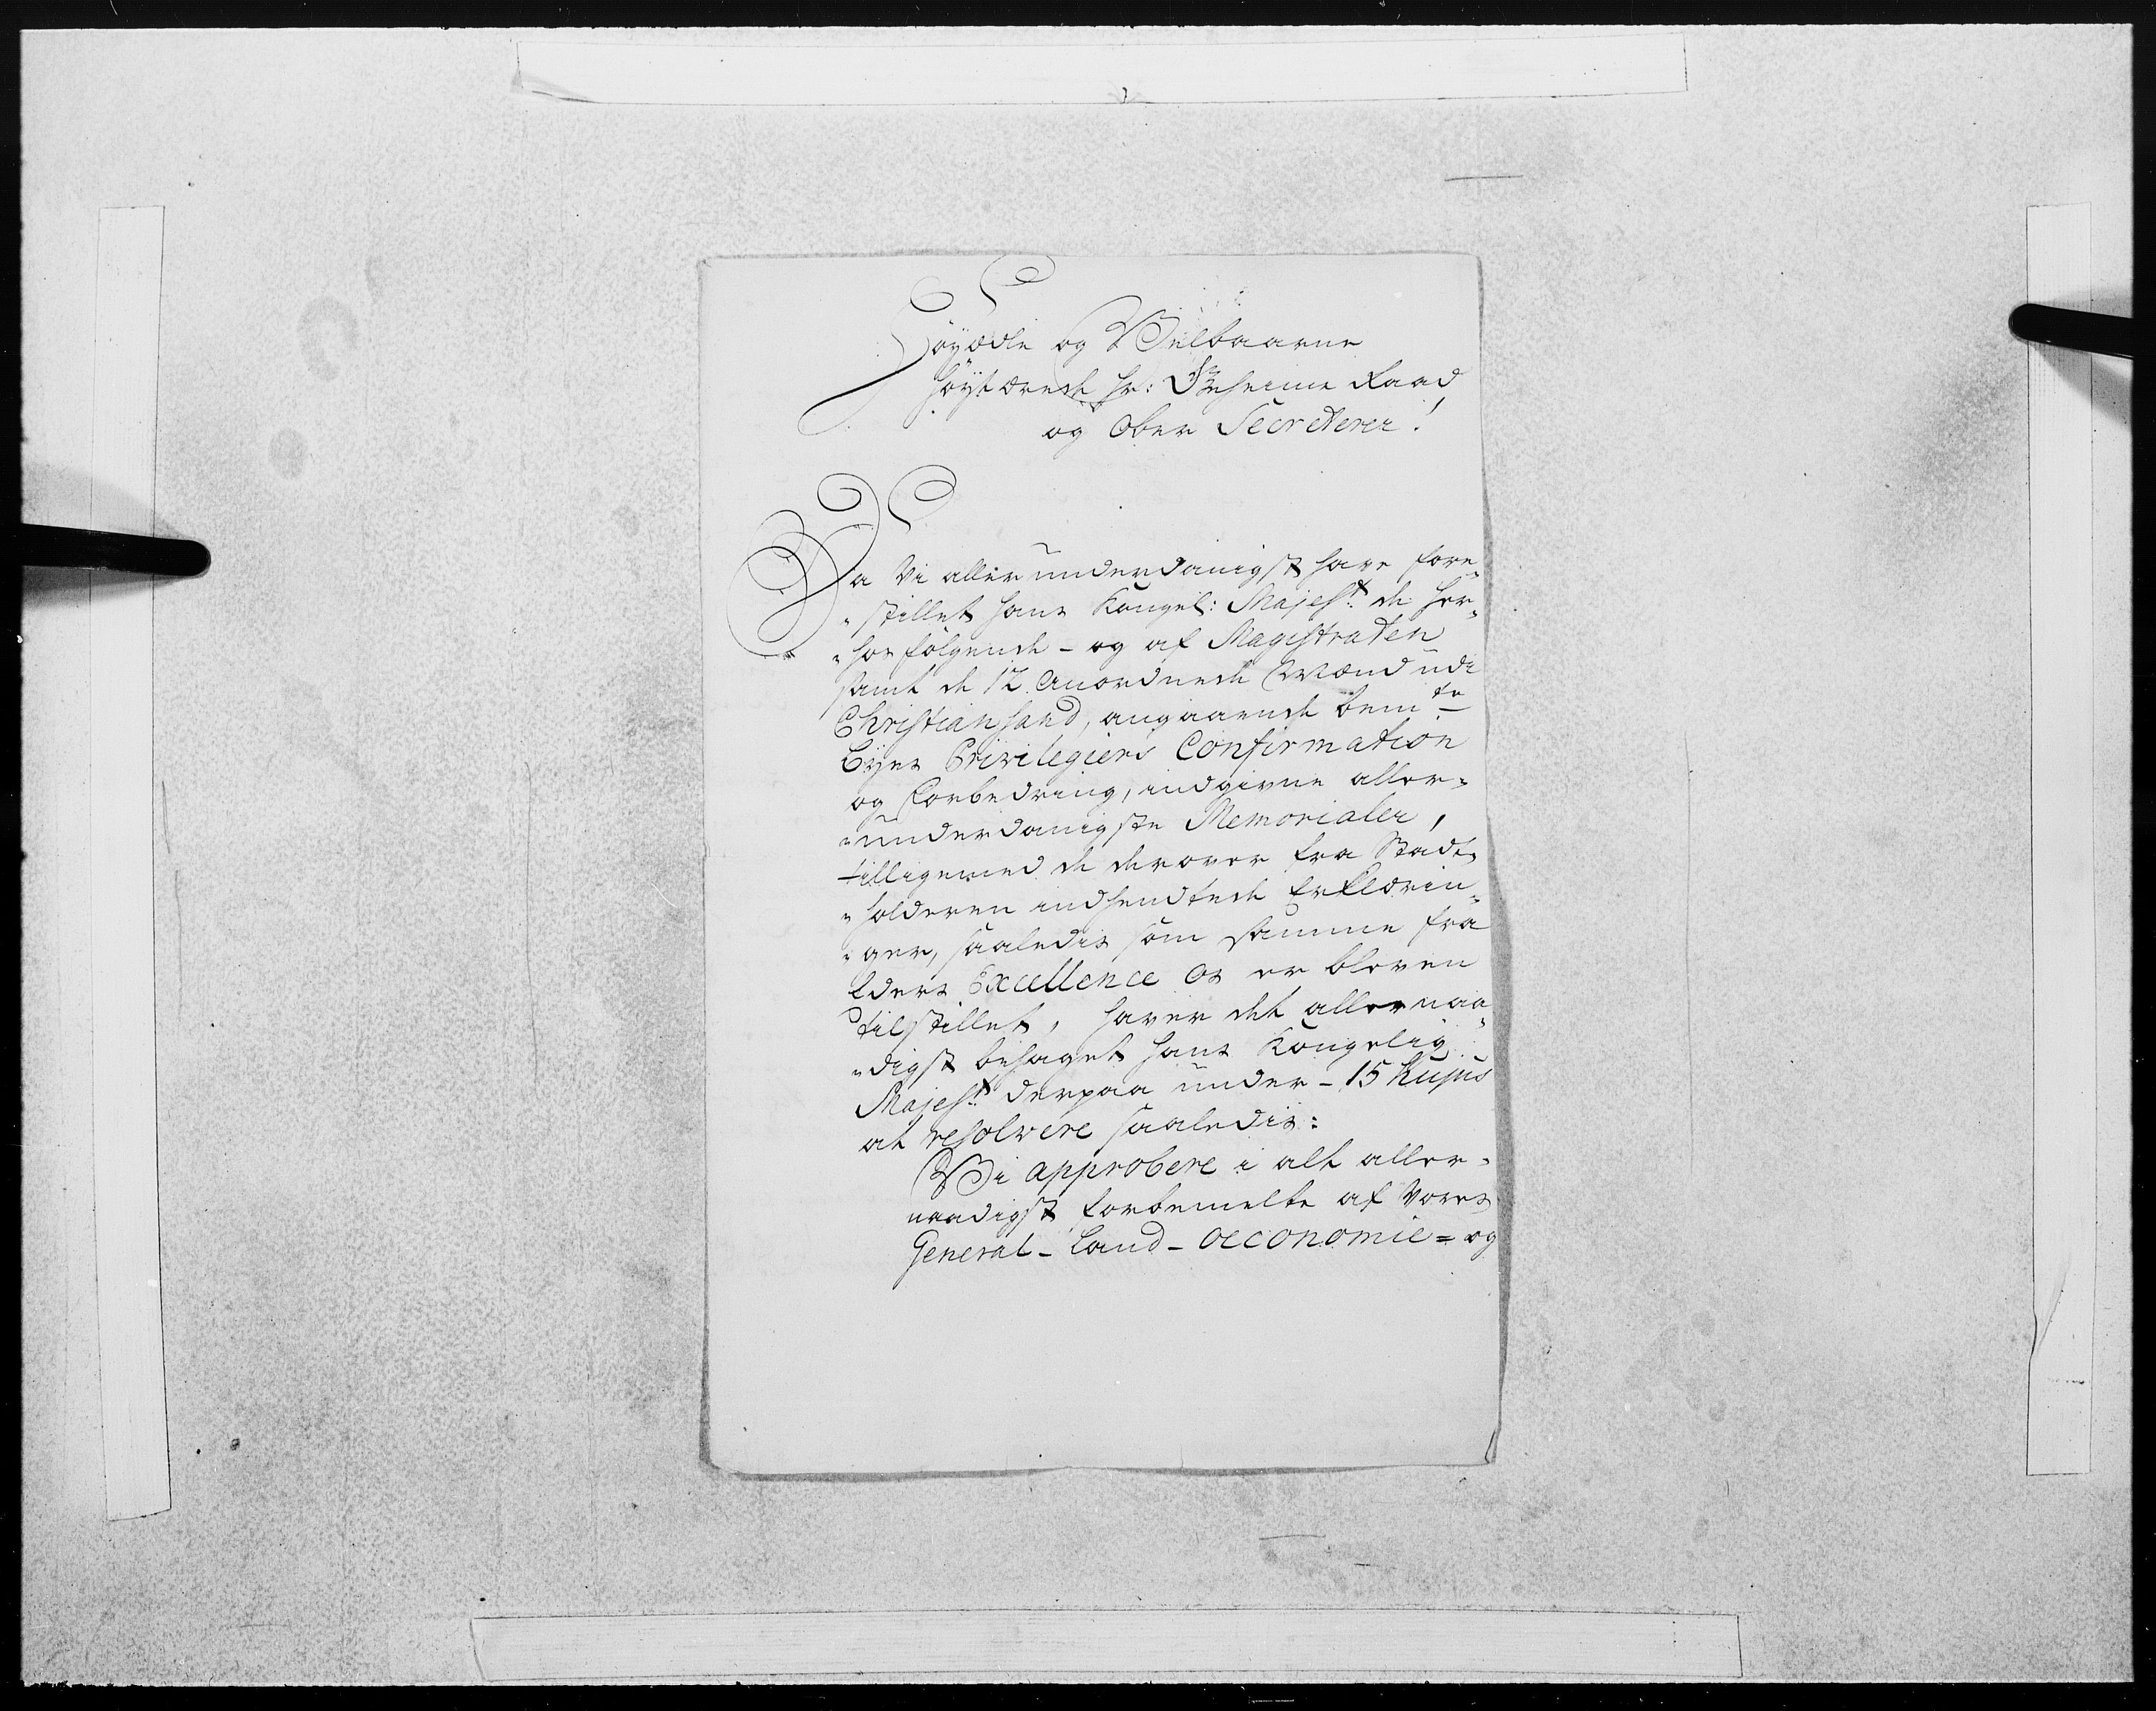 Höyædle og Velbaarne
Höytærede Hr: Geheime Raad
og Ober Secreterer!
Da Vi allerunderdanigst have fore-
stillet Hans Kongel: Majest: de her-
hos følgende - og af Magistraten
samt de 12. Anordnede Mænd udi
Christiansand, angaaende bem.te
Byes Privilegiers Confirmation
og Forbedring, indgivne aller-
underdanigste Memorialer,
tilligemed de derover fra Stadt-
holderen indsendtede Erklærin-
ger, saaledis som samme fra
Eders Excellence Os er bleven
tilstillet, haver det allernaa-
digst behaget Hans Kongelig
Majest: derpaa under - 15 Hujus
at resolvere saaledis:
Vi approbere i alt aller-
naadigst forbemelte af Vores
General-Land-Oeconomie- og